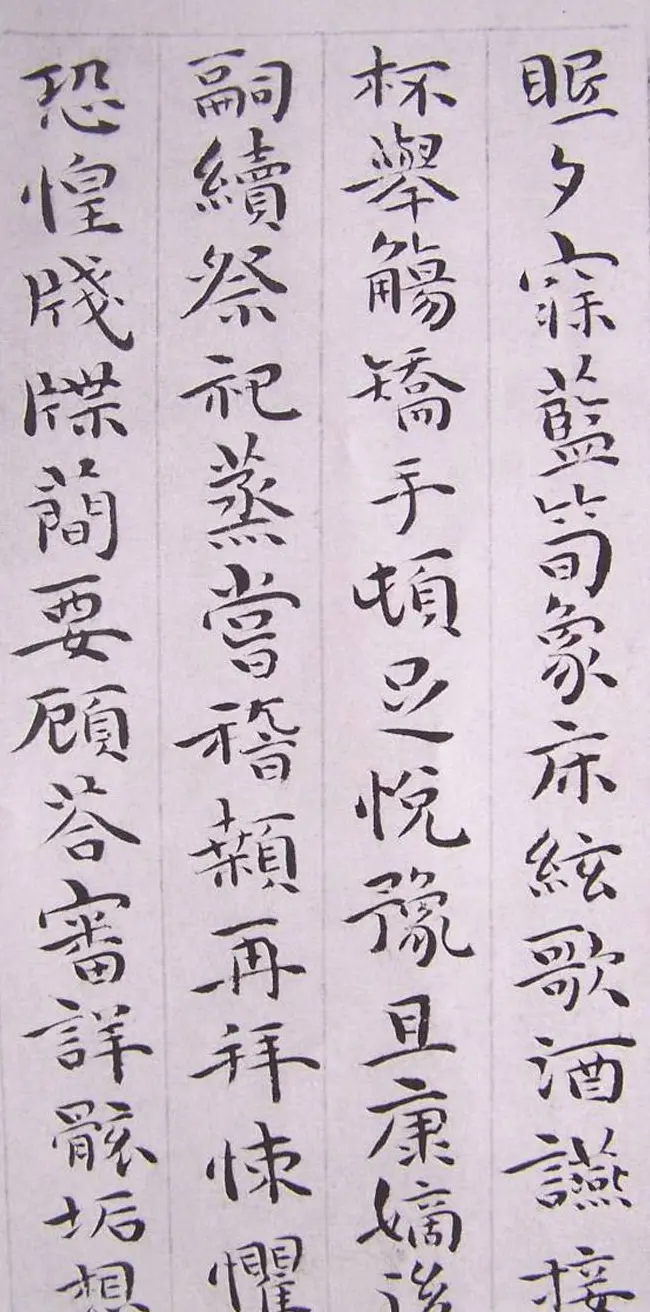 眠夕寐藍筍象床絃歌酒讌接
杯舉觴矯手頓足悅豫且康嫡後
嗣續祭祀蒸嘗稽顙再拜悚懼
恐惶牋牒簡要顧答審詳骸垢想